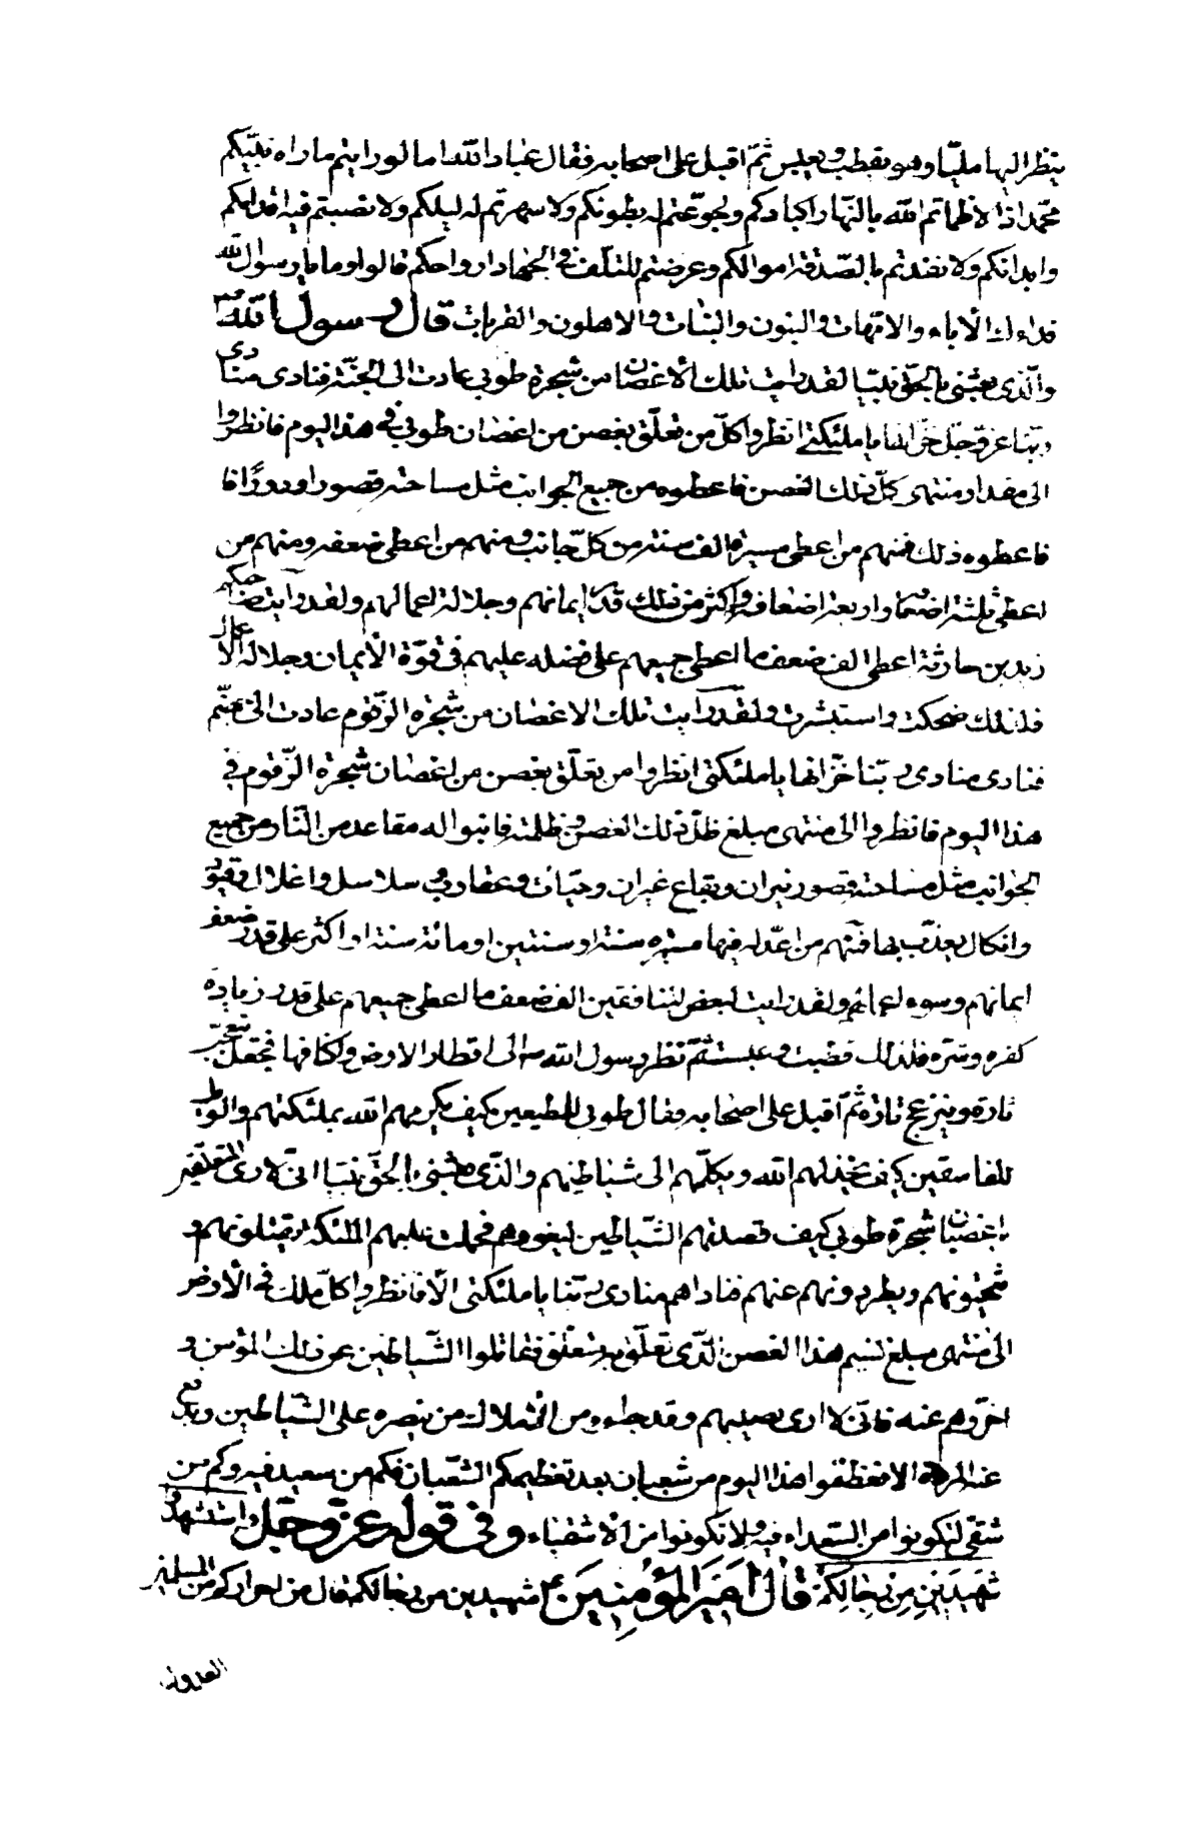 ينظر اليها مليّا وهو يقطب ويعبس ثمّ اقبل على اصحابه فقال عباد الله اما لو رايتم ما راه نبيّكم
محمّد اذا لاظماتم الله بالنّهار اكبادكم ولجوّعتم له بطونكم ولاسهرتم له ليلكم ولانصبتم فيه اقدامكم
وابدانكم ولانفدتم بالصّدقة اموالكم وعرضتم للتلف في الجهاد ارواحكم قالوا وما ما يا رسول الله
فداءك الآباء والامّهات والبنون والبنات والاهلون والقرابات قال رسول الله ص
والّذى بعثنى بالحقّ نبيّا لقد رايت تلك الأغصان من شجرة طوبى عادت الى الجنّة فنادى منادى
ربّنا عزّ وجلّ خزّانها يا ملئكتى انظروا كلّ من تعلّق بغصن من اغصان طوبى فى هذا اليوم فانظروا
الى مقدار منتهى كلّ ذلك الغصن فاعطوه من جميع الجوانب مثل مساحته قصورا ودورًا
فاعطوه ذلك فمنهم من اعطى مسيرة الف سنة من كلّ جانب ومنهم من اعطى ضعفه ومنهم من
اعطى ثلثة اضعاف واربعة اضعافه واكثر من ذلك قدر ايمانهم وجلالة اعمالهم ولقد رايت صاحبكم
زيد بن حارثة اعطى الف ضعف ما اعطى جميعهم على فضله عليهم فى قوّة الأيمان وجلالة الأعمال
فلذلك ضحكت واستبشرت ولقد رايت تلك الاغصان من شجرة الزّقوم عادت الى جهنّم
فنادى منادى ربّنا خزّانها يا ملئكتى انظروا من تعلّق بغصن من اغصان شجرة الزّقوم فى
هذا اليوم فانظروا الى منتهى مبلغ ظلّ ذلك الغصن وظلمته فابنوا له مقاعد من النّار من جميع
الجوانب مثل مساحته قصور نيران وبقاع غيران وحيّات وعقارب وسلاسل واغلال وقيود
وانكال يعذّب بها فمنهم من اعدّ له فيها مسيرة سنة او سنتين او مائة سنة او اكثر على قدر ضعف
ايمانهم وسوء اعمالهم ولقد رايت لبعض المنافقين الف ضعف ما اعطى جميعهم على قدر زيادة
كفره وشرّه فلذلك قطبت وعبست ثمّ نظر رسول الله ص الى اقطار الارض واكنافها فجعل يتعجّب
تارة وينزعج تارة ثمّ اقبل على اصحابه فقال طوبى للمطيعين كيف يكرمهم الله بملئكتهم والويل
للفاسقين كيف يخذلهم الله ويكلهم الى شياطينهم والّذى بعثنى بالحقّ نبيّا انّى لارى المتعلّقين
باغصان شجرة طوبى كيف قصدتهم الشّياطين ليغووهم فحملت عليهم الملئكة يقتلونهم و
يثخنونهم ويطردونهم عنهم فناداهم منادى ربّنا يا ملئكتى الّا فانظروا كلّ ملك فى الأرض
الى منتهى مبلغ نسيم هذا الغصن الّذى تعلّق به متعلّق فقاتلوا الشّياطين عن ذلك المؤمن و
اخّروهم عنه فانّى لارى بعضهم وقد جاءه من الأملاك من ينصره على الشّياطين ويدفع
عنه المردة الا فعظّموا هذا اليوم من شعبان بعد تعظيمكم الشّعبان فكم من سعيد فيه وكم من
شقى لتكونوا من السّعداء فيه ولا تكونوا من الأشقياء وفى قوله عزّ وجلّ واستشهدوا
شهيدين من رجالكم قال امير المؤمنين ع شهيدين من رجالكم قال من احراركم من المسلمين
العدول